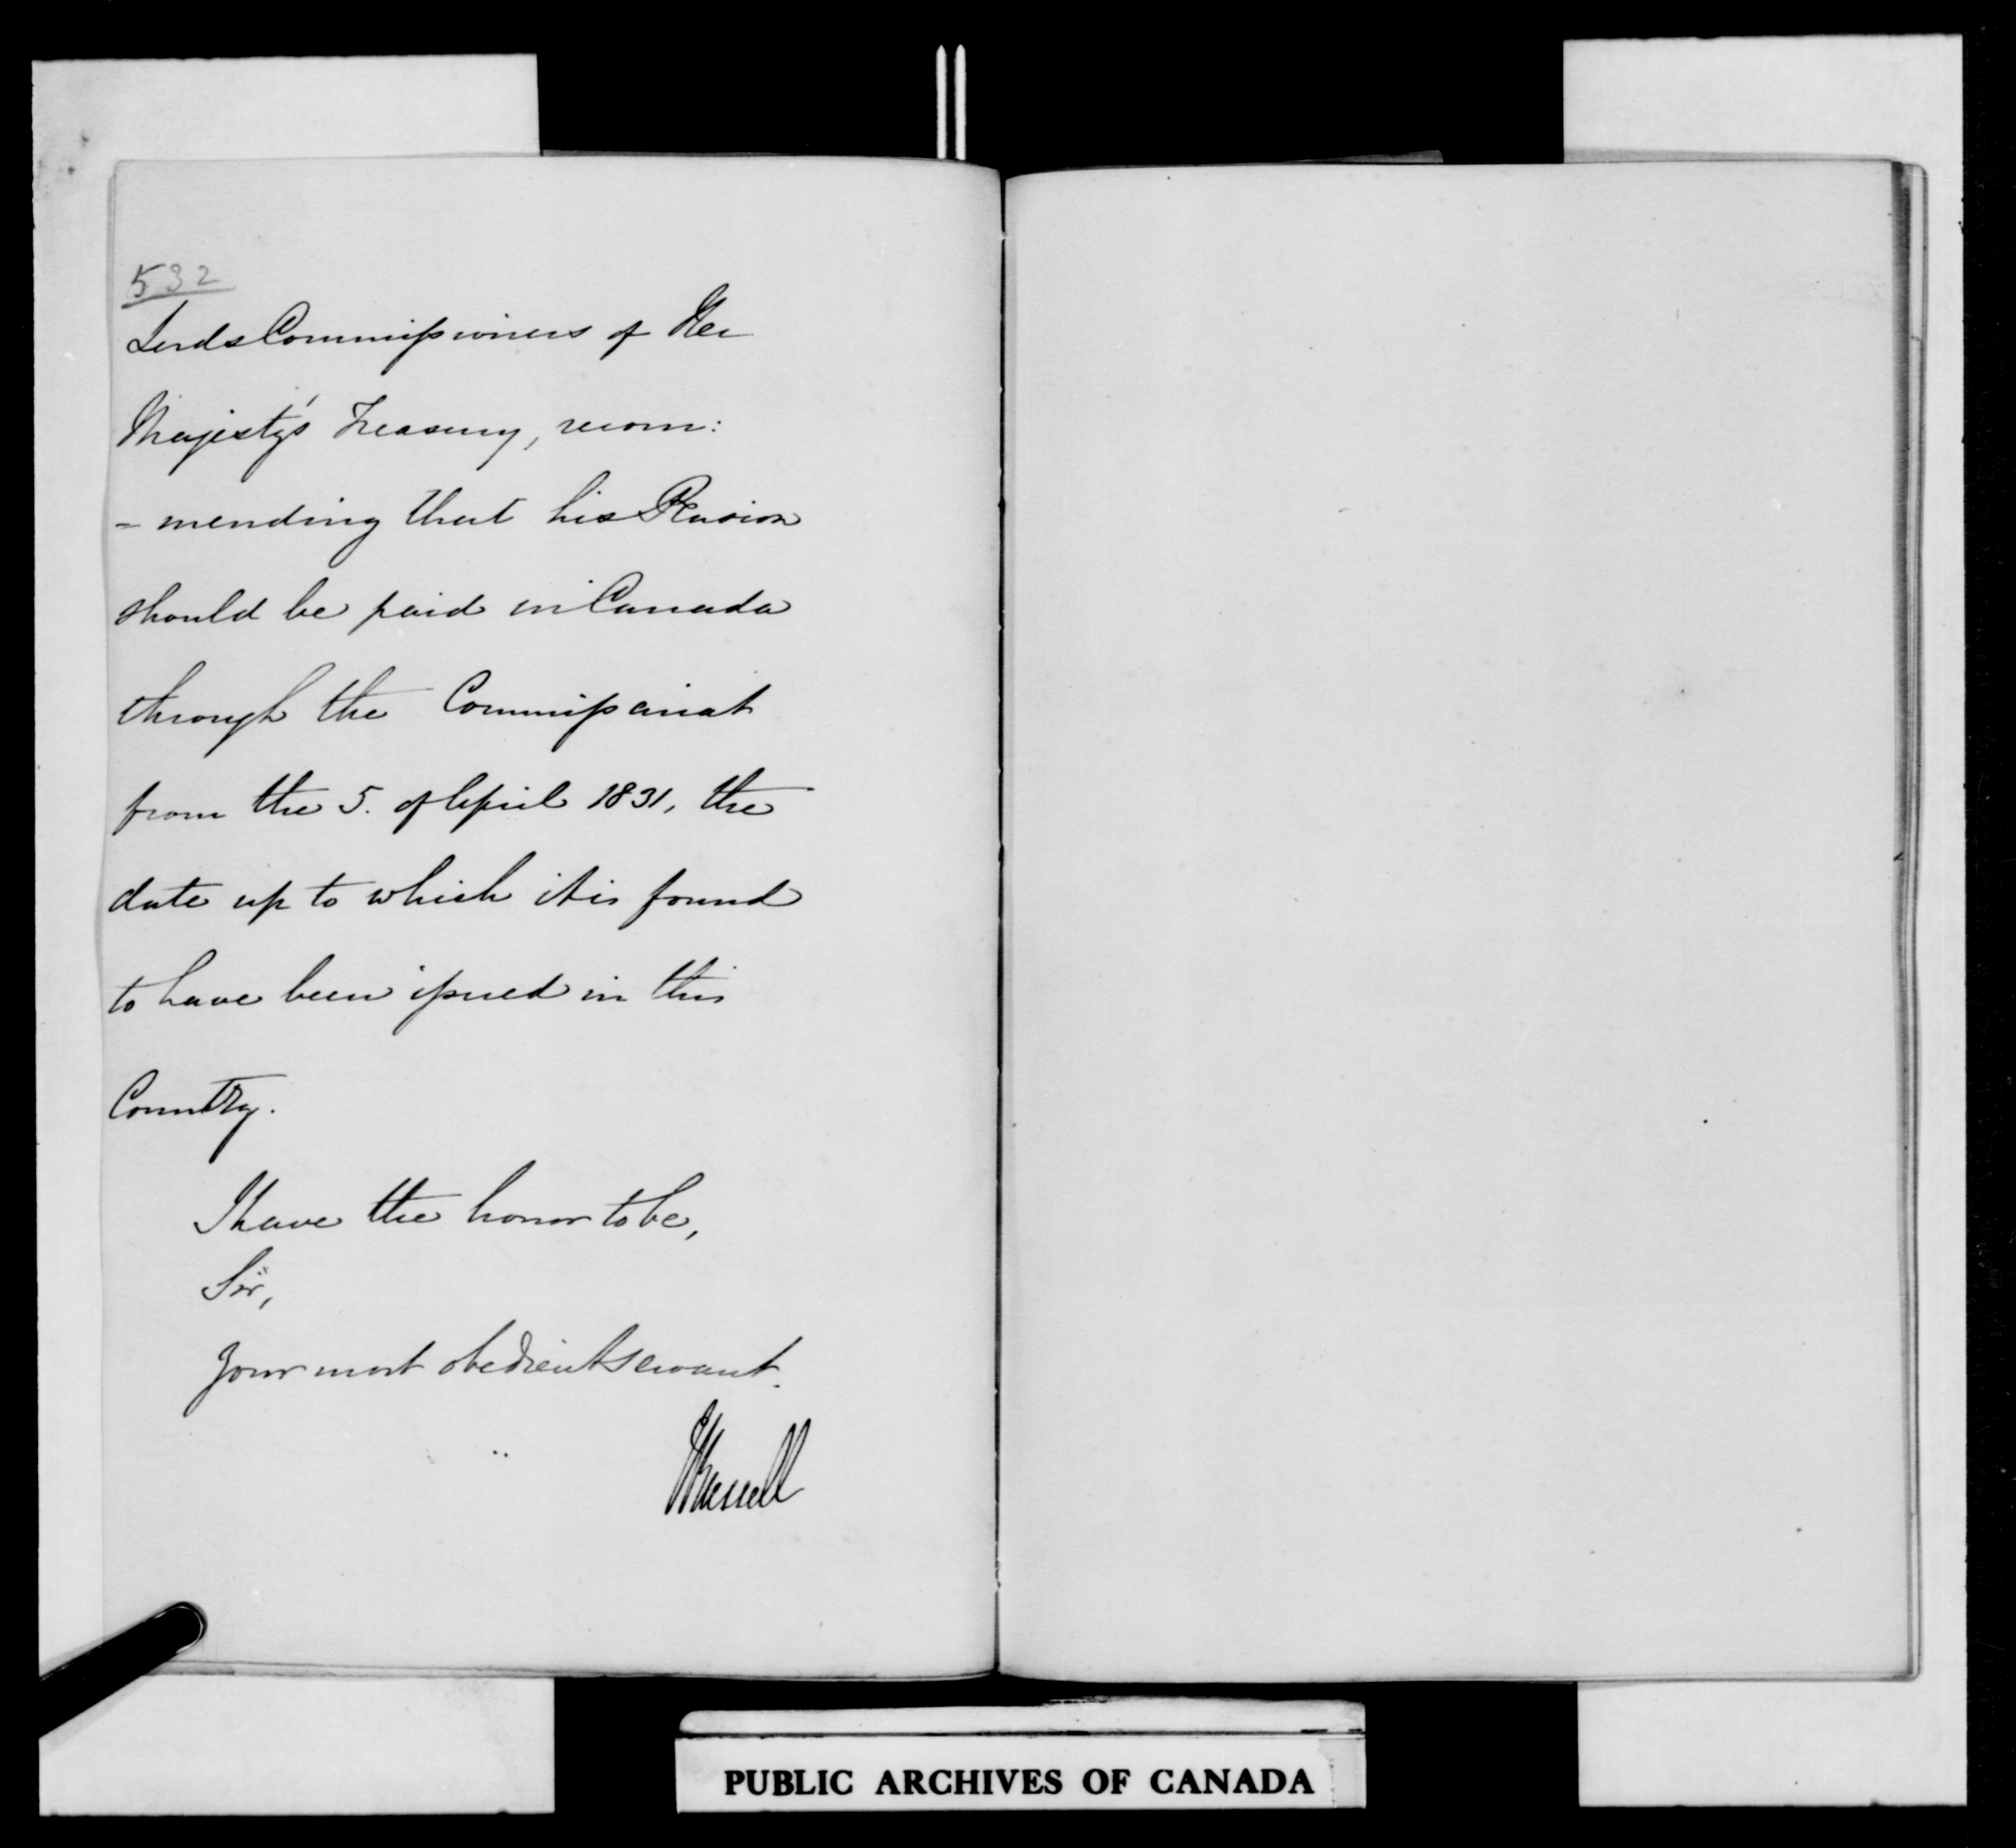 532
Lords Commissioners of Her
Majesty's Treasury, recom:
- mending that his Pension
should be paid in Canada
through the Commissariat
from the 5. of April 1831, the
date up to which it is found
to have been issued in this
Country.
I have the honor to be,
Sir,
Your most obedient servant.
J Russell
PUBLIC ARCHIVES OF CANADA